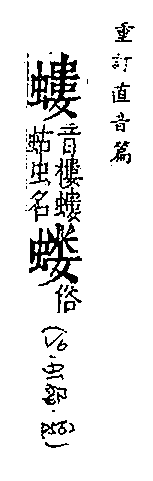 重訂直音篇
螻音樓螻
蛄虫名
蝼俗
(卷6·虫部·P562)